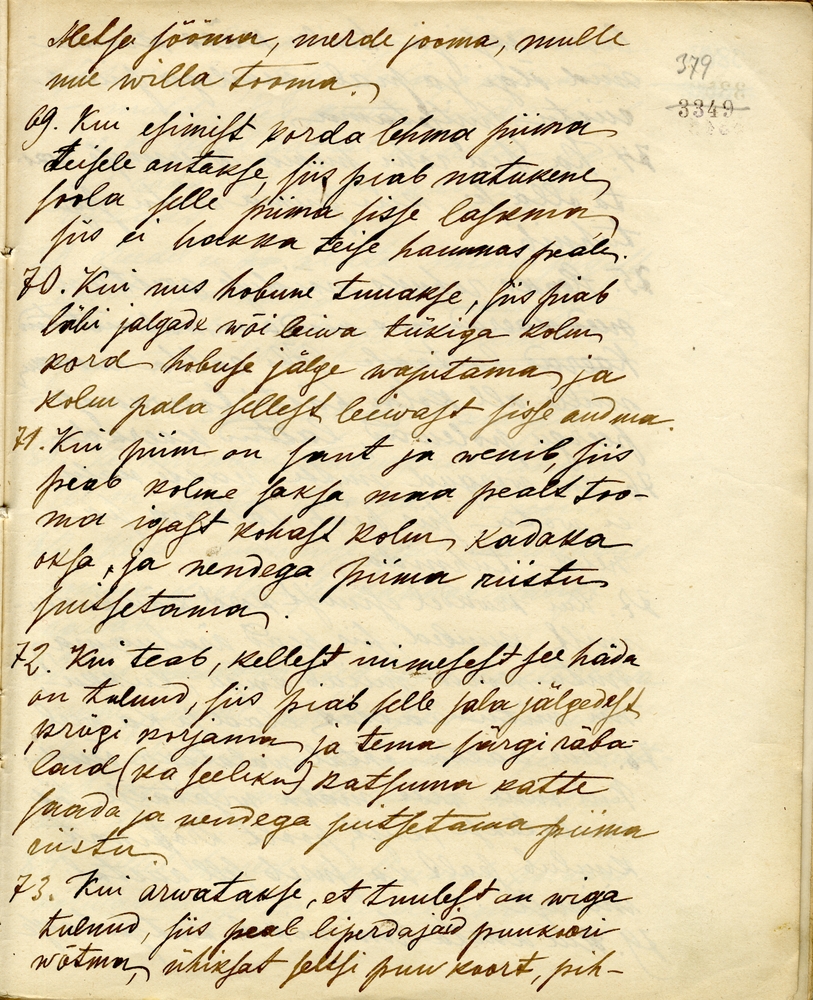 Metsa sööma, merde jooma, mulle
mue willa tooma.
379
3349
69. Kui esimist korda lehma piima
teisele antakse, siis piab natukene
soola selle piima sisse laskma
siis ei hakka teise hammas peale.
70. Kui uus hobune tuuakse, siis piab
läbi jalgade wõi leiwa tükiga kolm
kord hobuse jälge wajutama ja
kolm pala sellest leiwast sisse andma.
71. Kui piim on sant ja wenib, siis
peab kolme saksa maa pealt too-
ma igast kohast kolm kadaka
oksa, ja nendega piima riistu
suitsetama.
72. Kui teab, kellest inimesest see häda
on tulnud, siis piab selle jala jälgedest
prügi korjama ja tema särgi räba-
laid (ka seeliku) katsuma katte
saada ja nendega suitsetama piima
riistu
73. Kui arwatakse, et tuulest on wiga
tulnud, siis peab liperdajaid puukoori
wõtma, ühiksat seltsi puu koort, pih-